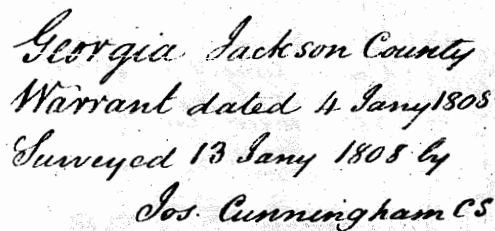 Georgia Jackson County
Warrant dated 4 Jany 1808
Surveyed 13 Jany 1808 by
Jos. Cunningham CS